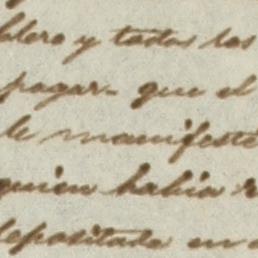 blero y todos los
pagar- que el
le manifesté
quien habia
depositada en